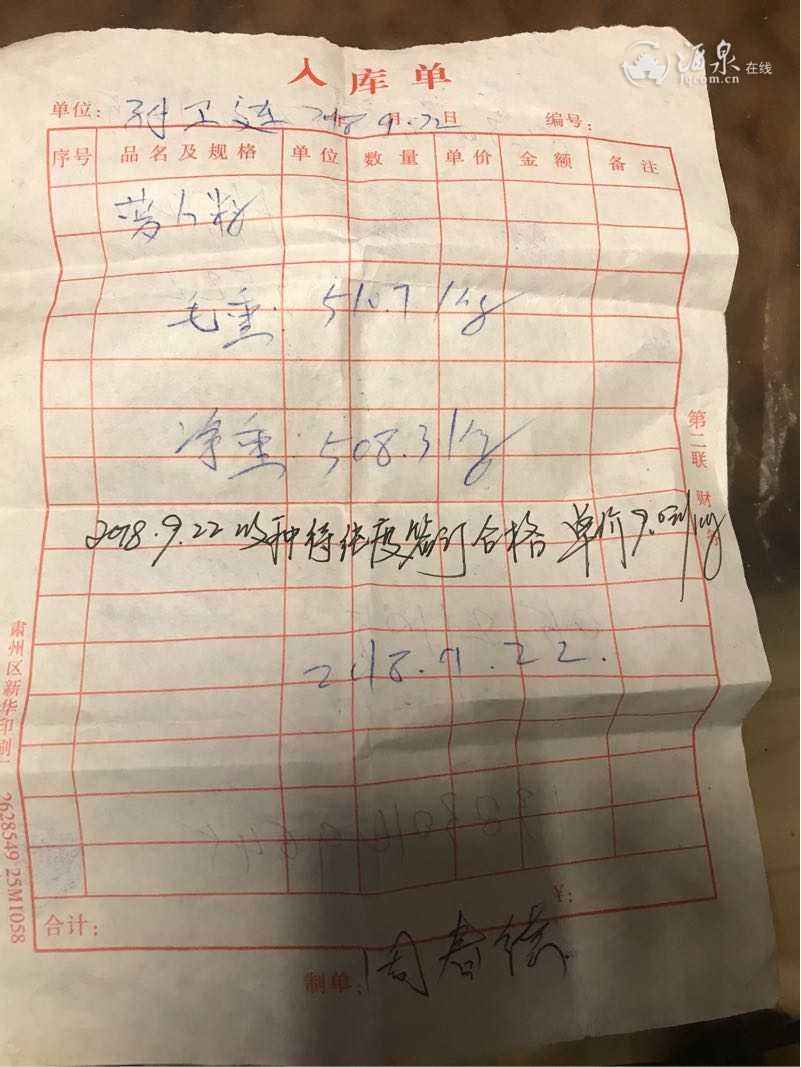 酒泉在线
jqcom.cn
入库单
单位: 2018年9月22日 编号:
序号 品名及规格 单位 数量 单价 金额 备注
毛重: 510.7 kg
净重: 508.3 kg
第二联 财
2018.9.22 收种待纯度 合格 单价9.0元/kg
2018.9.22.
肃州区新华印刷厂 2628549 25M1058
合计: ¥:
制单: 周春